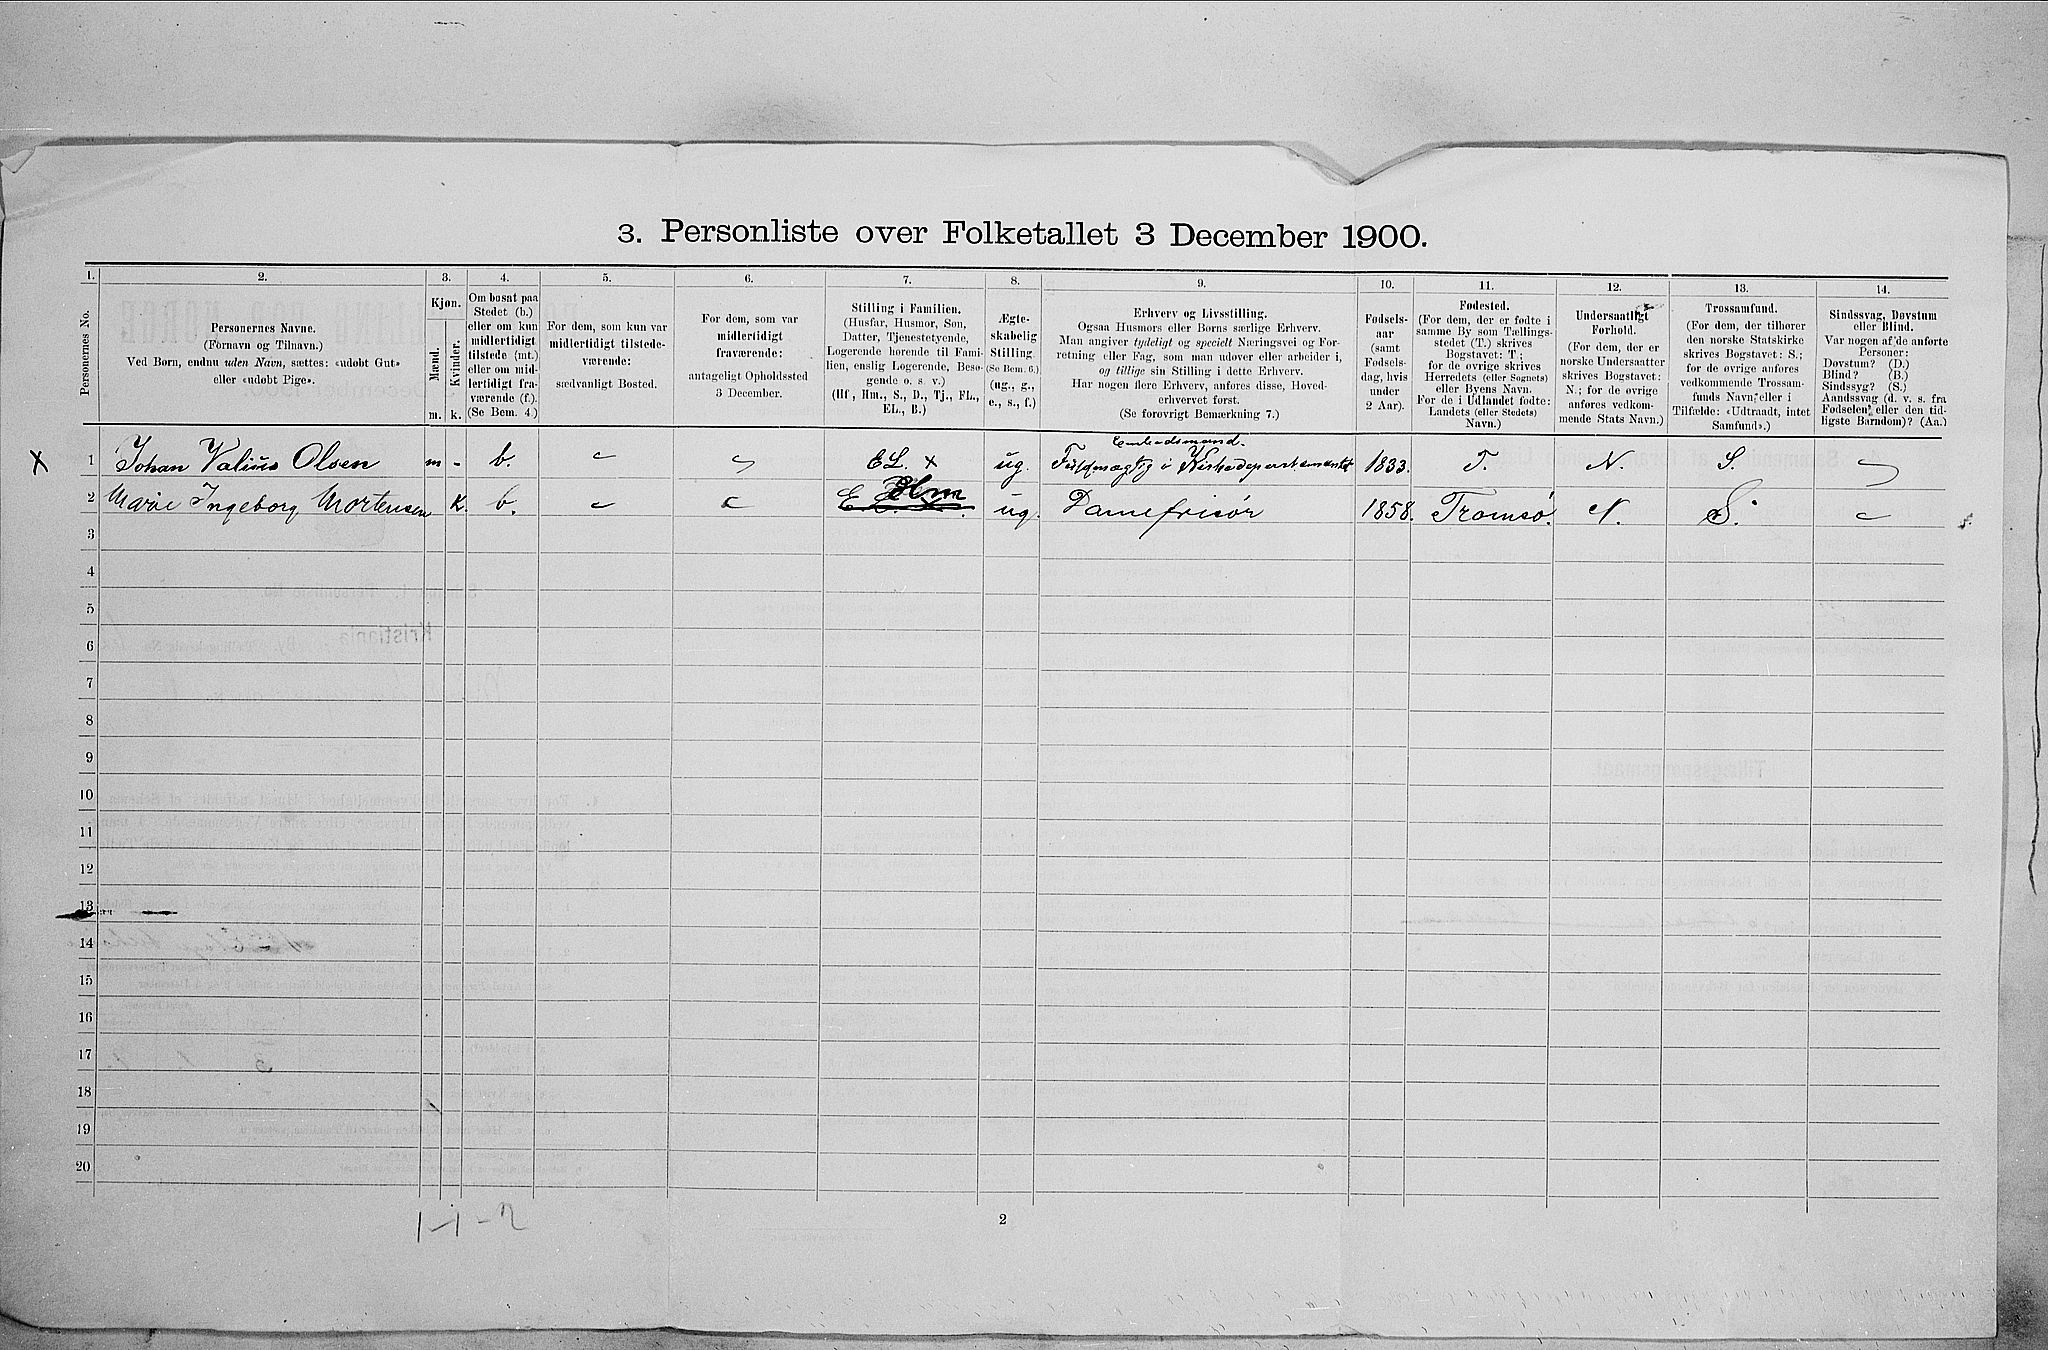 3. Personliste over Folketallet 3 December 1900.
1. 2. 3. 4. 5. 6. 7. 8. 9. 10. 11. 12. 13. 14.
Personernes No.
Personernes Navne.
(Fornavn og Tilnavn.)
Ved Børn, endnu uden Navn, sættes: «udøbt Gut»
eller «udøbt Pige».
Kjøn.
Mænd.
Kvinder.
m. k.
Om bosat paa
Stedet (b.)
eller om kun
midlertidigt
tilstede (mt.)
eller om mid-
lertidigt fra-
værende (f.).
(Se Bem. 4.)
For dem, som kun var
midlertidigt tilstede-
værende:
sædvanligt Bosted.
For dem, som var
midlertidigt
fraværende:
antageligt Opholdssted
3 December.
Stilling i Familien.
(Husfar, Husmor, Søn,
Datter, Tjenestetyende,
Logerende hørende til Fami-
lien, enslig Logerende, Besø-
gende o. s. v.)
(Hf, Hm., S., D., Tj., FL.,
EL., B.)
Ægte-
skabelig
Stilling.
(Se Bem. 6.)
(ug., g.,
e., s., f.)
Erhverv og Livsstilling.
Ogsaa Husmors eller Børns særlige Erhverv.
Man angiver tydeligt og specielt Næringsvei og For-
retning eller Fag, som man udøver eller arbeider i,
og tillige sin Stilling i dette Erhverv.
Har nogen flere Erhverv, anføres disse, Hoved-
erhvervet først.
(Se forøvrigt Bemærkning 7.)
Fødsels-
aar
(samt
Fødsels-
dag, hvis
under
2 Aar).
Fødested.
(For dem, der er fødte i
samme By som Tællings-
stedet (T.) skrives
Bogstavet: T;
for de øvrige skrives
Herredets (eller Sognets)
eller Byens Navn.
For de i Udlandet fødte:
Landets (eller Stedets)
Navn.)
Undersaatligt
Forhold.
(For dem, der er
norske Undersaatter
skrives Bogstavet:
N.; for de øvrige
anføres vedkom-
mende Stats Navn.)
Trossamfund.
(For dem, der tilhører
den norske Statskirke
skrives Bogstavet: S.;
for de øvrige anføres
vedkommende Trossam-
funds Navn, eller i
Tilfælde: «Udtraadt, intet
Samfund».)
Sindssvag, Døvstum
eller Blind.
Var nogen af de anførte
Personer:
Døvstum? (D.)
Blind? (B.)
Sindssyg? (S.)
Aandssvag (d. v. s. fra
Fødselen eller den tid-
ligste Barndom)? (Aa.)
Embedsmand.
X 1 Johan Valius Olsen m - b. EL. x ug. Fuldmægtig i Kirkedepartementet 1833. T. N. S.
2 Marie Ingeborg Mortensen k. b. Hm ug. Damefrisør 1858. Tromsø. N. S.
3
4
5
6
7
8
9
10
11
12
13
14
15
16
17
18
19
20
1-1-2
2